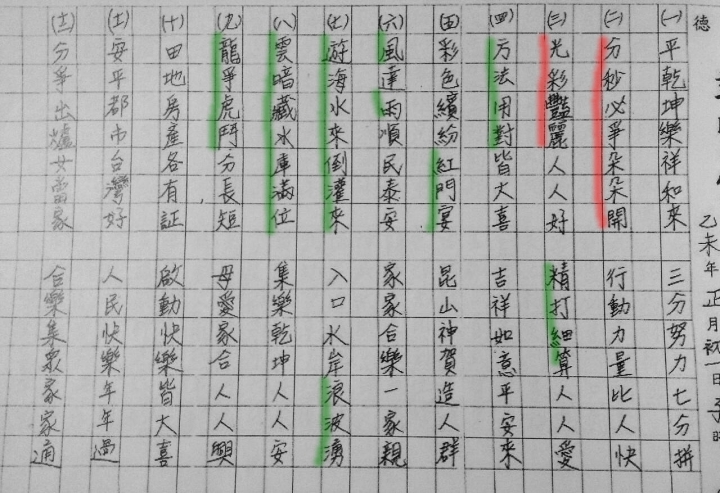 德
乙未年正月初一日子時
(一) 平乾坤樂祥和來 三分努力七分拼
(二) 分秒必爭朵朵開 行動力量比人快
(三) 光彩豔麗人人好 精打細算人人愛
(四) 方法用對皆大喜 吉祥如意平安來
(五) 彩色繽紛紅門宴 昆山神賀造人群
(六) 風達雨順民泰安 家家合樂一家親
(七) 遊海水來倒灌來 入口水岸浪波湧
(八) 雲暗藏水庫滿位 集樂乾坤人人安
(九) 龍爭虎鬥分長短 母愛家合人人興
(十) 田地房產各有証 啟動快樂皆大喜
(十一) 安平都市台灣好 人民快樂年年過
(十二) 分爭出爐女當家 合樂集眾家家通